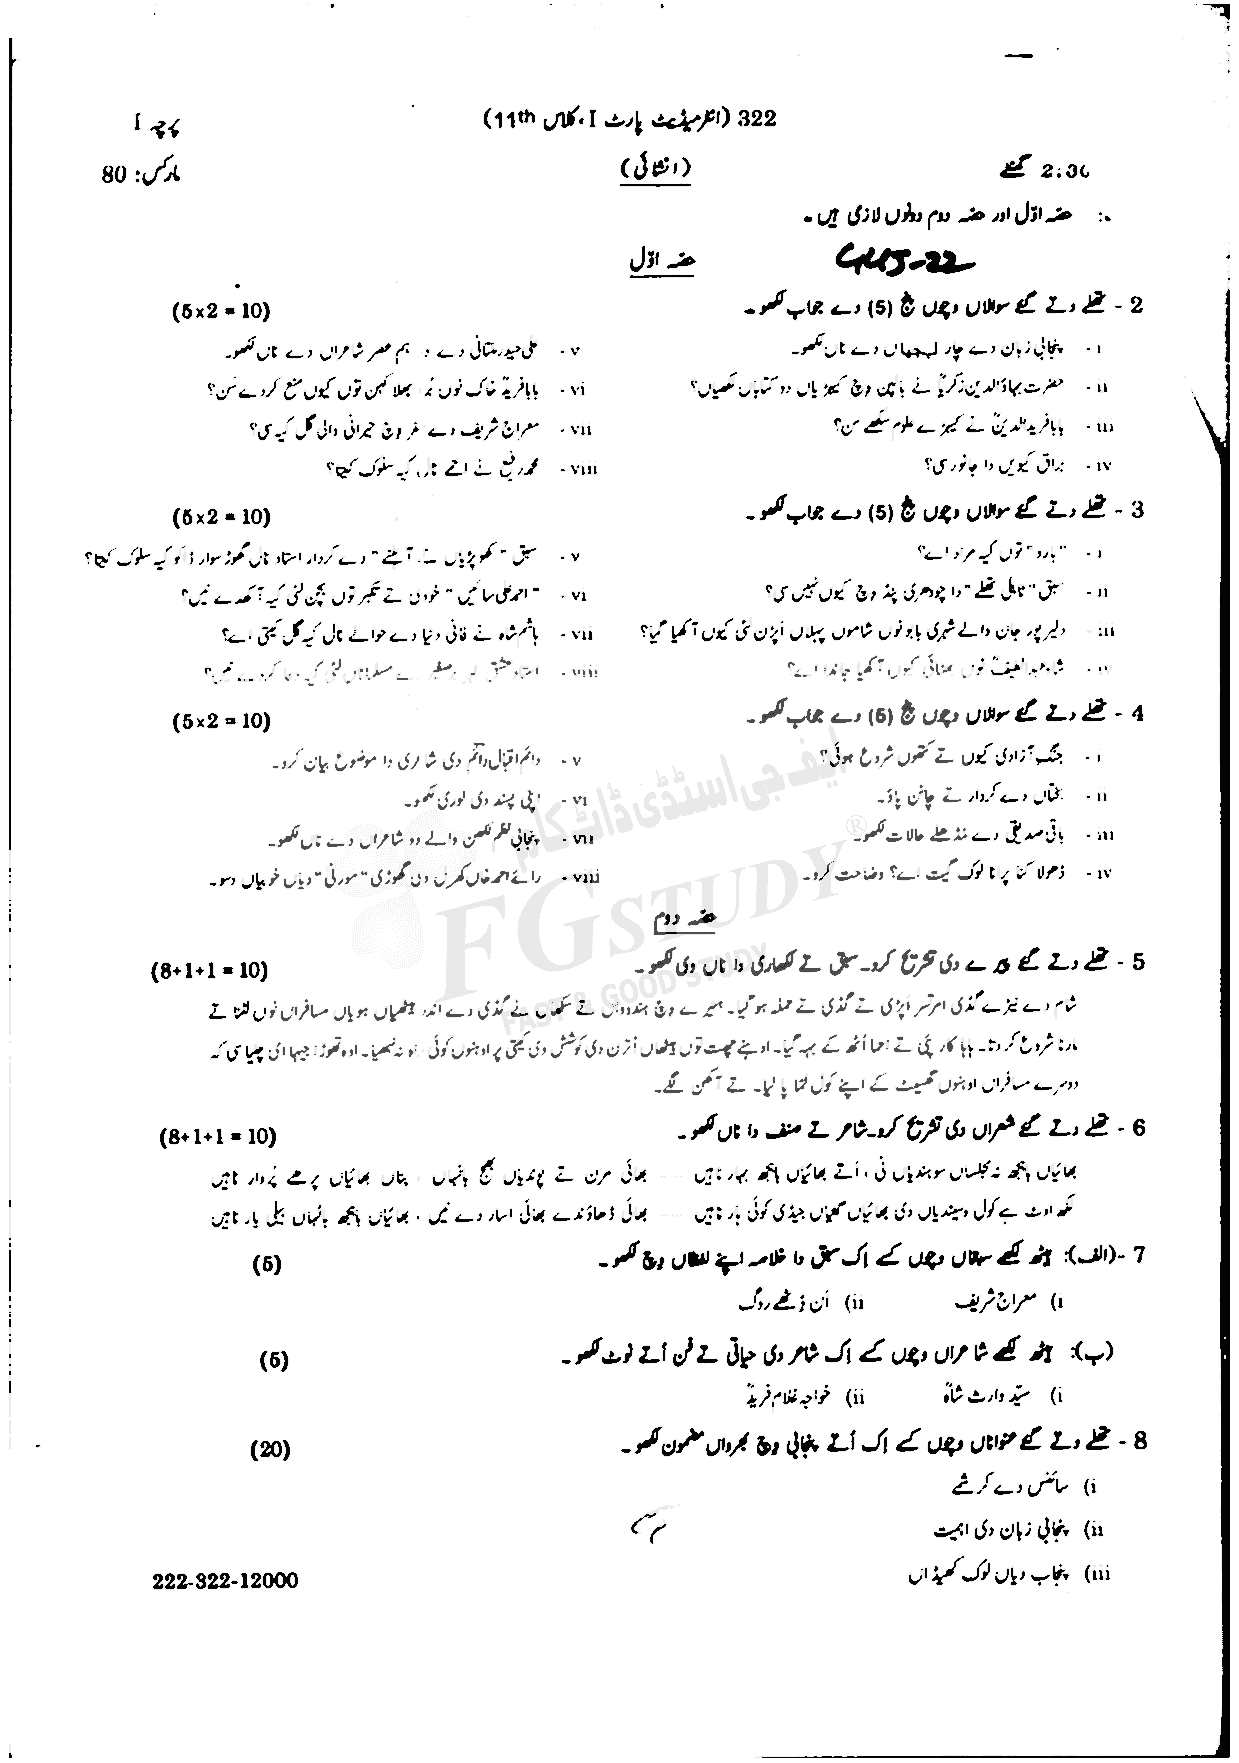 322 (انٹرمیڈیٹ پارٹ I، کلاس 11th)
پرچہ I
2:30 گھنٹے
(انشائی)
مارکس: 80
حصہ اوّل اور حصہ دوم دونوں لازمی ہیں۔
GUJ-22
حصہ اوّل
2 - تھلے دتے گئے سوالاں وچوں پنج (5) دے جواب لکھو۔ (5x2 = 10)
i - پنجابی زبان دے چار لہجیاں دے ناں لکھو۔
v - علی حیدر ملتانی دے دو ہم عصر شاعراں دے ناں لکھو۔
ii - حضرت بہاؤالدین زکریاؒ نے بالپن وچ کیہڑیاں دو کتاباں لکھیاں؟
vi - بابا فریدؒ خاک نوں بُرا بھلا کہن توں کیوں منع کردے سن؟
iii - بابا فریدالدینؒ نے کیہڑے علوم سکھے سن؟
vii - معراج شریف دے سفر وچ حیرانی والی گل کیہ سی؟
iv - براق کیویں دا جانور سی؟
viii - محمد رفیع نے احمے نال کیہ سلوک کیتا؟
3 - تھلے دتے گئے سوالاں وچوں پنج (5) دے جواب لکھو۔ (5x2 = 10)
i - "بارو" توں کیہ مراد اے؟
v - سبق "کھوپڑیاں نے آہنے" دے کردار استاد نال گھوڑ سوار ڈاکو کیہ سلوک کیتا؟
ii - سبق "ٹاہلی تھلے" دا چودھری پنڈ وچ کیوں نہیں سی؟
vi - "احمد علی سائیں" خودن تے تکبر توں بچن لئی کیہ آکھدے نیں؟
iii - دلیر پور جان والے شہری بابو نوں شاموں پہلاں اپڑن لئی کیوں آکھیا گیا؟
vii - ہاشم شاہ نے فانی دنیا دے حوالے نال کیہ گل کیتی اے؟
iv - شاہ عبداللطیفؒ نوں بھٹائی کیوں آکھیا جاندا اے؟
viii - استاد عشق لہر برصغیر دے مسلماناں لئی کیہ دعا کردے نیں؟
4 - تھلے دتے گئے سوالاں وچوں پنج (5) دے جواب لکھو۔ (5x2 = 10)
i - جنگ آزادی کیوں تے کتھوں شروع ہوئی؟
v - دائم اقبال دائم دی شاعری دا موضوع بیان کرو۔
ii - بختاں دے کردار تے چانن پاؤ۔
vi - اپنی پسند دی لوری لکھو۔
iii - باقی صدیقی دے مُڈھلے حالات لکھو۔
vii - پنجابی نظم لکھن والے دو شاعراں دے ناں لکھو۔
iv - ڈھولا کنا پرانا لوک گیت اے؟ وضاحت کرو۔
viii - رائے احمد خاں کھرل دی گھوڑی "مورنی" دیاں خوبیاں دسو۔
حصہ دوم
5 - تھلے دتے گئے پیرے دی تشریح کرو۔ سبق تے لکھاری دا ناں وی لکھو۔ (8+1+1 = 10)
شام دے نیڑے گڈی امرتسر اپڑی تے گڈی تے حملہ ہو گیا۔ میرے وچ ہندوواں تے سکھاں نے گڈی دے اندر بیٹھیاں ہویاں مسافراں نوں لٹنا تے
مارنا شروع کر دتا۔ ہاہا کار پئی تے احما اُٹھ کے بہہ گیا۔ اوہنے چھت توں ہیٹھاں اُترن دی کوشش وی کیتی پر اوہنوں کوئی راہ نہ لبھیا۔ اوہ تھوڑا جیہا ای ہلیا سی کہ
دوسرے مسافراں اوہنوں گھسیٹ کے اپنے کول لٹا پا لیا۔ تے آکھن لگے۔
6 - تھلے دتے گئے شعراں دی تشریح کرو۔ شاعر تے صنف دا ناں لکھو۔ (8+1+1 = 10)
بھائیاں باجھ نہ مجلساں سوہندیاں نی، اتے بھائیاں باجھ بہار ناہیں
بھائی مرن تے پوندیاں بھج باہاں، بناں بھائیاں پرھے پروار ناہیں
لکھ اوٹ ہے کول وسیندیاں دی بھائیاں گیاں جیڈی کوئی ہار ناہیں
بھائی ڈھاؤندے بھائی اساردے نیں، بھائیاں باجھ بانہاں بیلی یار ناہیں
7 -(الف): ہیٹھ لکھے سبقاں وچوں کسے اک سبق دا خلاصہ اپنے لفظاں وچ لکھو۔ (5)
i) معراج شریف
ii) اَن ڈٹھے روگ
(ب): ہیٹھ لکھے شاعراں وچوں کسے اک شاعر دی حیاتی تے فن اُتے نوٹ لکھو۔ (5)
i) سیّد وارث شاہؒ
ii) خواجہ غلام فریدؒ
8 - تھلے دتے گئے عنواناں وچوں کسے اک اُتے پنجابی وچ بھرواں مضمون لکھو۔ (20)
i) سائنس دے کرشمے
ii) پنجابی زبان دی اہمیت
iii) پنجاب دیاں لوک کھیڈاں
222-322-12000
ایف جی اسٹڈی ڈاٹ کام
FGSTUDY ®
FAST & GOOD STUDY